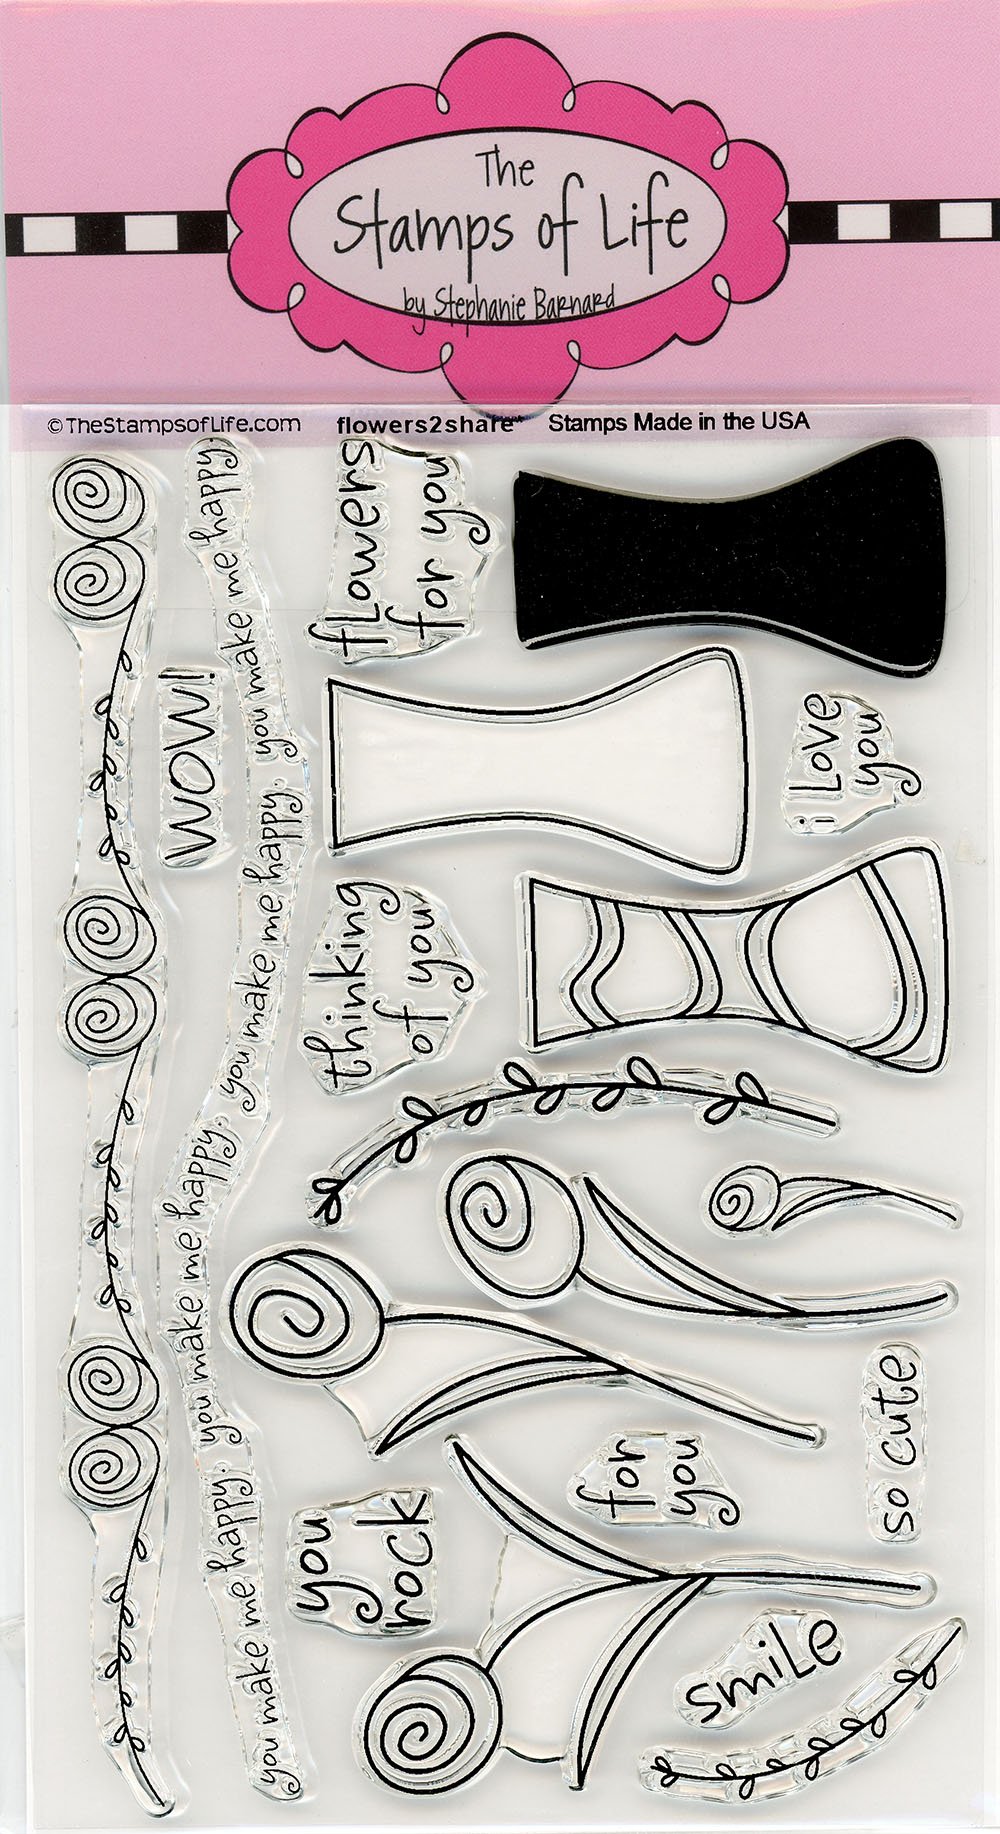 The
Stamps of Life
by Stephanie Barnard
©TheStampsofLife.com flowers2share™ Stamps Made in the USA
flowers
for you
WOW!
you make me happy. you make me happy. you make me happy. you make me happy.
i Love
you
thinking
of you
so cute
for
you
you
rock
smiLe